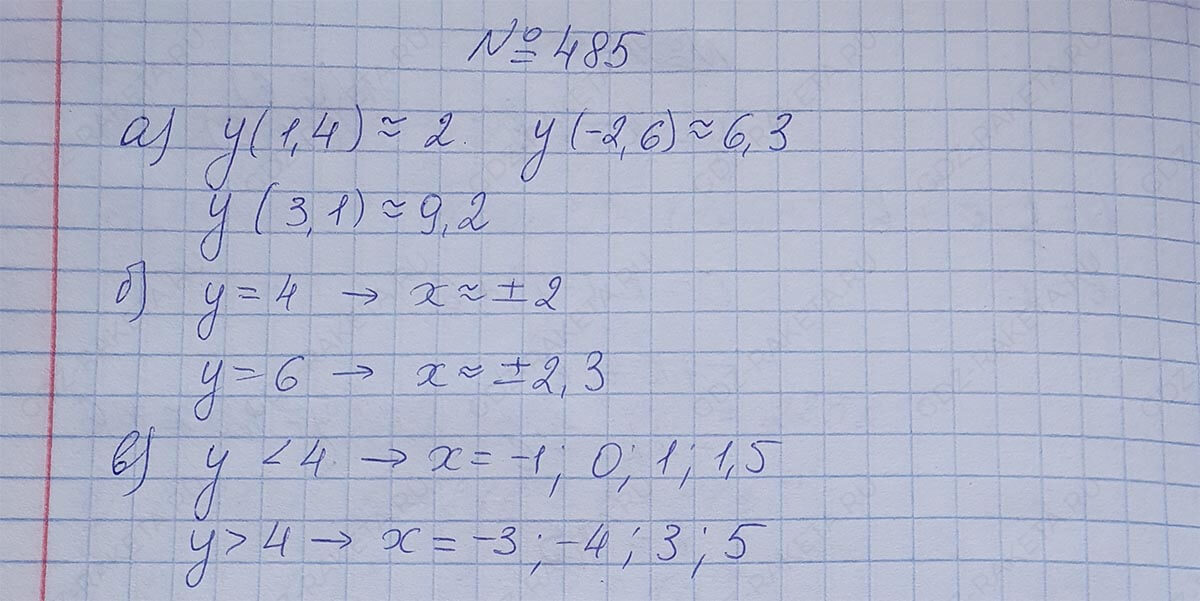 № 485
а) y(1,4) ≈ 2. y(-2,6) ≈ 6,3
y(3,1) ≈ 9,2
б) y = 4 → x ≈ ± 2
y = 6 → x ≈ ± 2,3
в) y < 4 → x = -1; 0; 1; 1,5
y > 4 → x = -3; -4; 3; 5